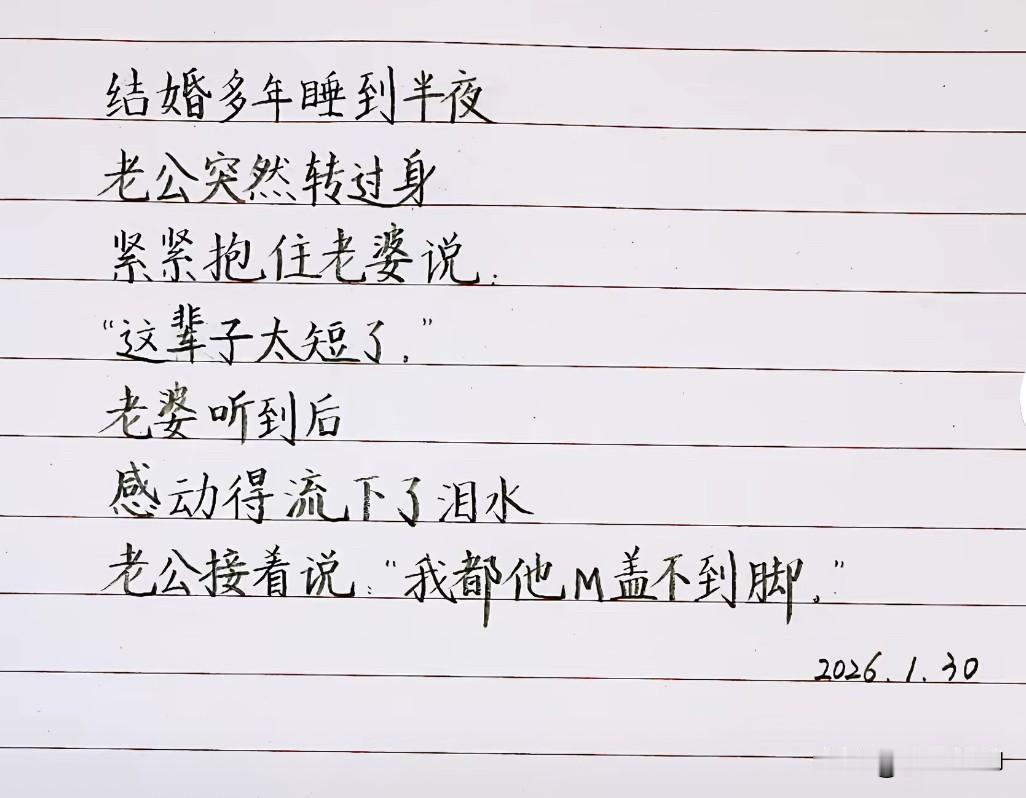 结婚多年睡到半夜
老公突然转过身
紧紧抱住老婆说:
“这辈子太短了。”
老婆听到后
感动得流下了泪水
老公接着说:“我都他M盖不到脚。”
2026.1.30